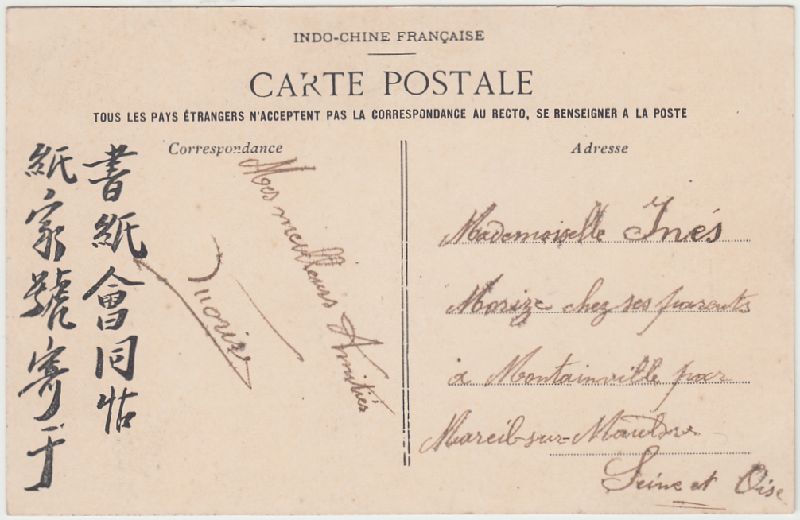 INDO-CHINE FRANÇAISE
CARTE POSTALE
TOUS LES PAYS ÉTRANGERS N'ACCEPTENT PAS LA CORRESPONDANCE AU RECTO, SE RENSEIGNER A LA POSTE
Correspondance
書紙會同帖
紙家號寄于
Mes meilleures Amitiés
Morize
Adresse
Mademoiselle Inés
Morize chez ses parents
à Montainville par
Mareil-sur-Mauldre
Seine et Oise